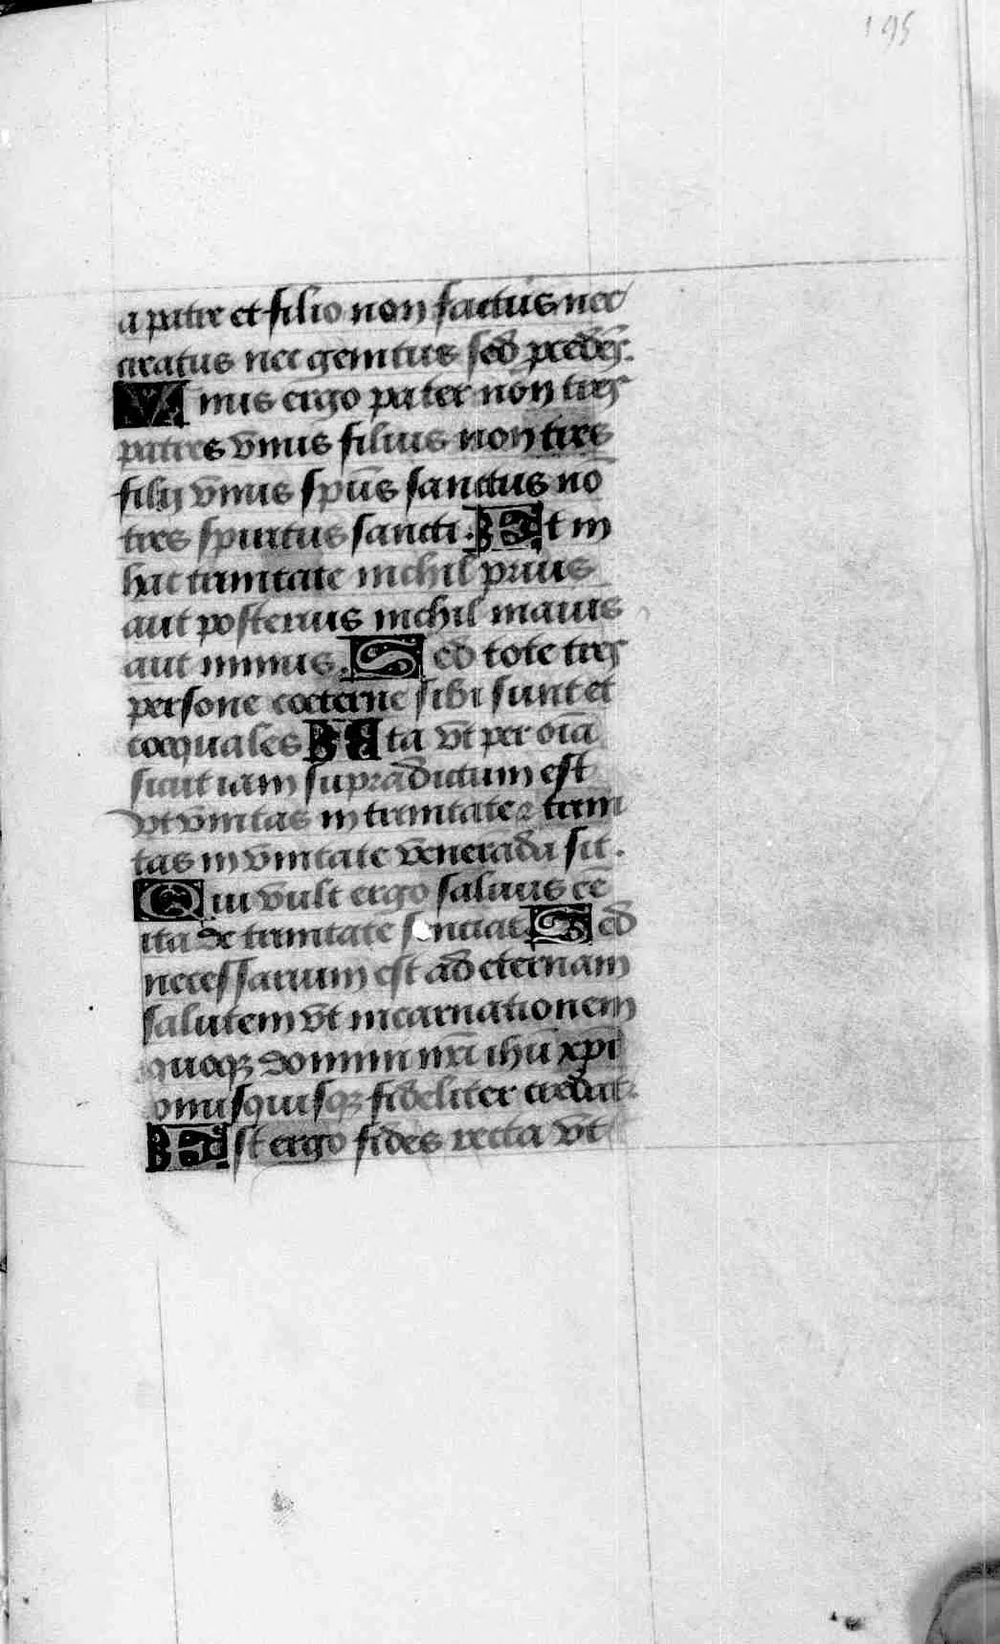 195
a patre et filio non factus nec
creatus nec genitus sed p̄cedēs.
Unus ergo pater non tres
patres vnus filius non tres
filij vnus sp̄us sanctus nō
tres spiritus sancti. Et in
hac trinitate nichil prius
aut posterius nichil maius
aut minus. Sed tote tres
persone coeterne sibi sunt et
coequales Ita vt per oīa
sicut iam supradictum est
vt vnitas in trinitate ꝛ trini
tas in vnitate veneranda sit.
Qui vult ergo saluus eē
ita de trinitate senciat Sed
necessarium est ad eternam
salutem vt incarnationem
quoqꝫ domini nr̄i ihū xp̄i
vnusquisqꝫ fideliter credat.
Est ergo fides recta vt